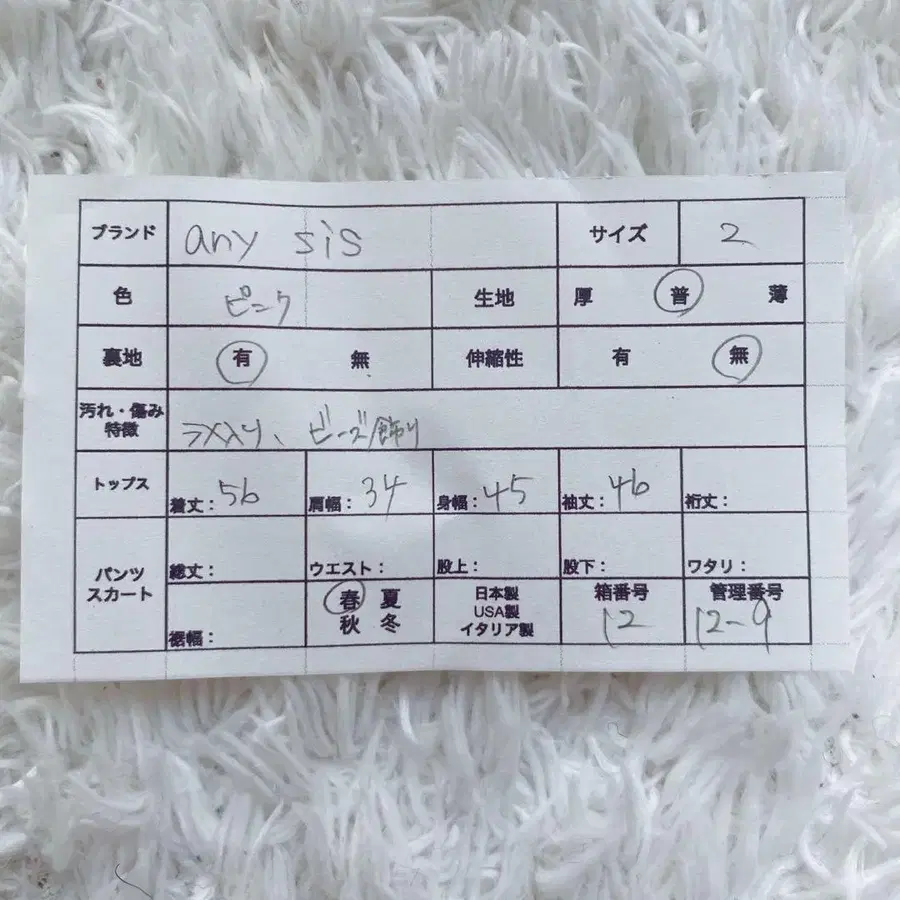 ブランド any sis サイズ 2
色 ピンク 生地 厚 普 薄
裏地 有 無 伸縮性 有 無
汚れ・傷み
特徴 ラメ入り、ビーズ飾り
トップス 着丈：56 肩幅：34 身幅：45 袖丈：46 裄丈：
パンツ
スカート
総丈： ウエスト： 股上： 股下： ワタリ：
裾幅：
春 夏
秋 冬
日本製
USA製
イタリア製
箱番号
12
管理番号
12-9